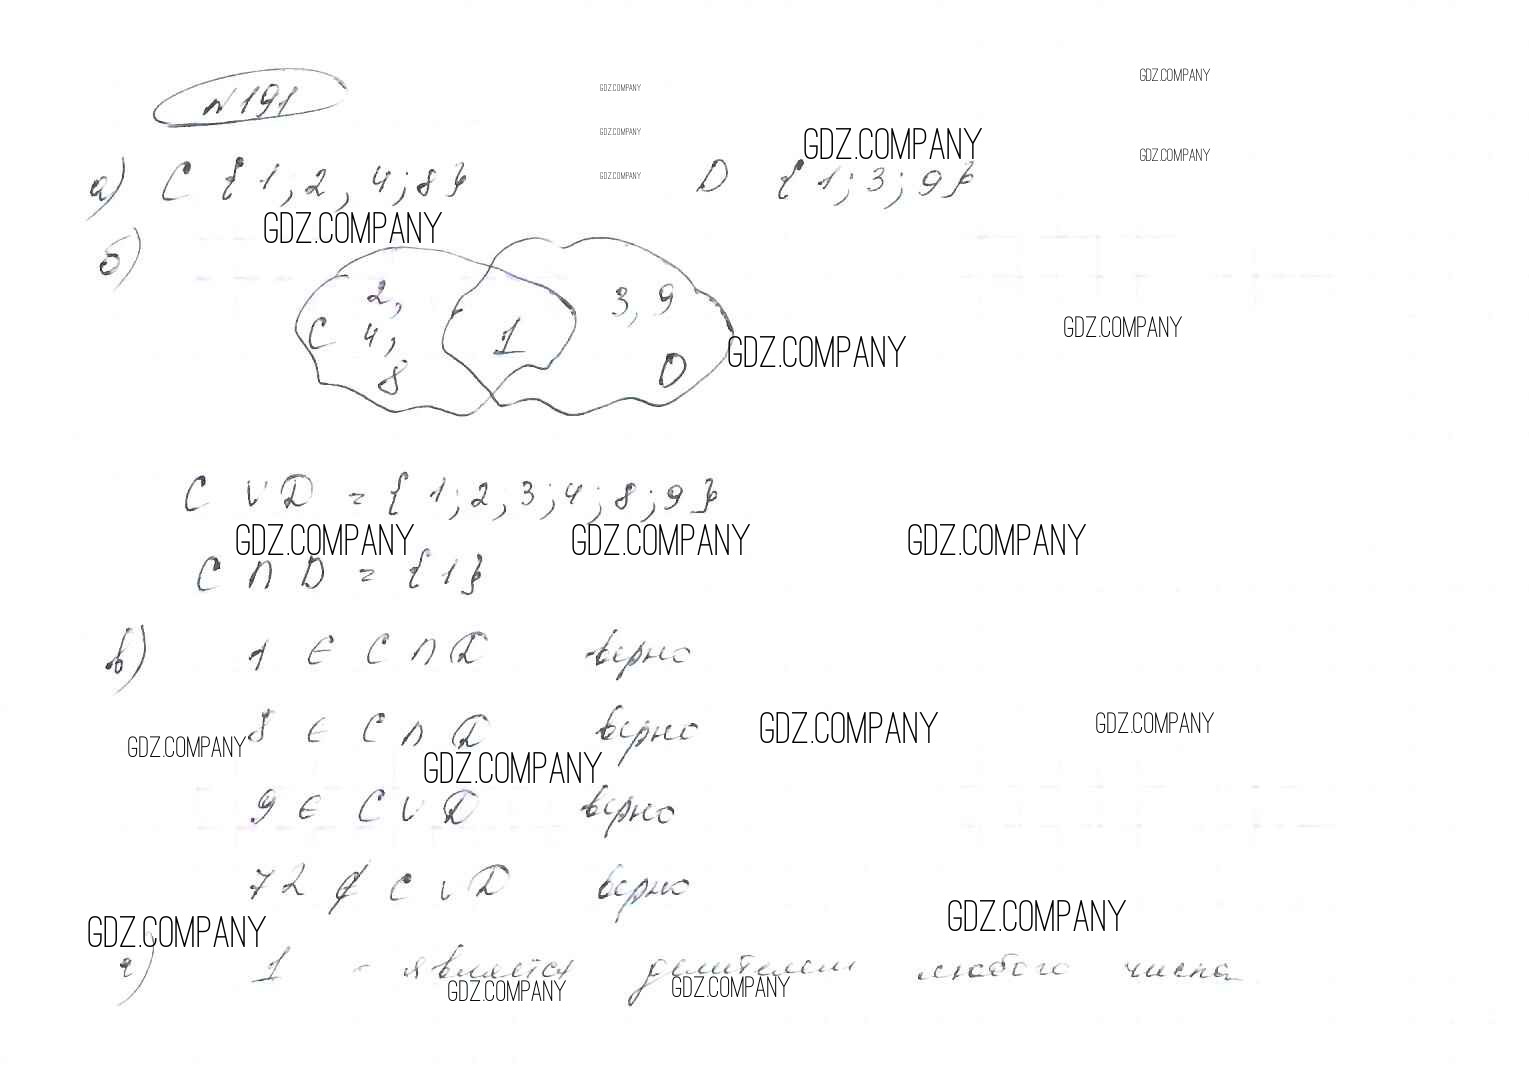 N191
GDZ.COMPANY
GDZ.COMPANY
GDZ.COMPANY
GDZ.COMPANY
GDZ.COMPANY
GDZ.COMPANY
а) C {1; 2, 4; 8} D {1; 3; 9}
GDZ.COMPANY
б)
2, 3, 9
C 4, 1
8 D
GDZ.COMPANY
GDZ.COMPANY
C ∪ D = {1; 2, 3; 4; 8; 9}
GDZ.COMPANY GDZ.COMPANY GDZ.COMPANY
C ∩ D = {1}
в) 1 ∈ C ∩ D верно
8 ∈ C ∩ D верно
GDZ.COMPANY GDZ.COMPANY GDZ.COMPANY
GDZ.COMPANY
9 ∈ C ∪ D верно
72 ∉ C ∪ D верно
GDZ.COMPANY GDZ.COMPANY
г) 1 - является делителем любого числа
GDZ.COMPANY GDZ.COMPANY